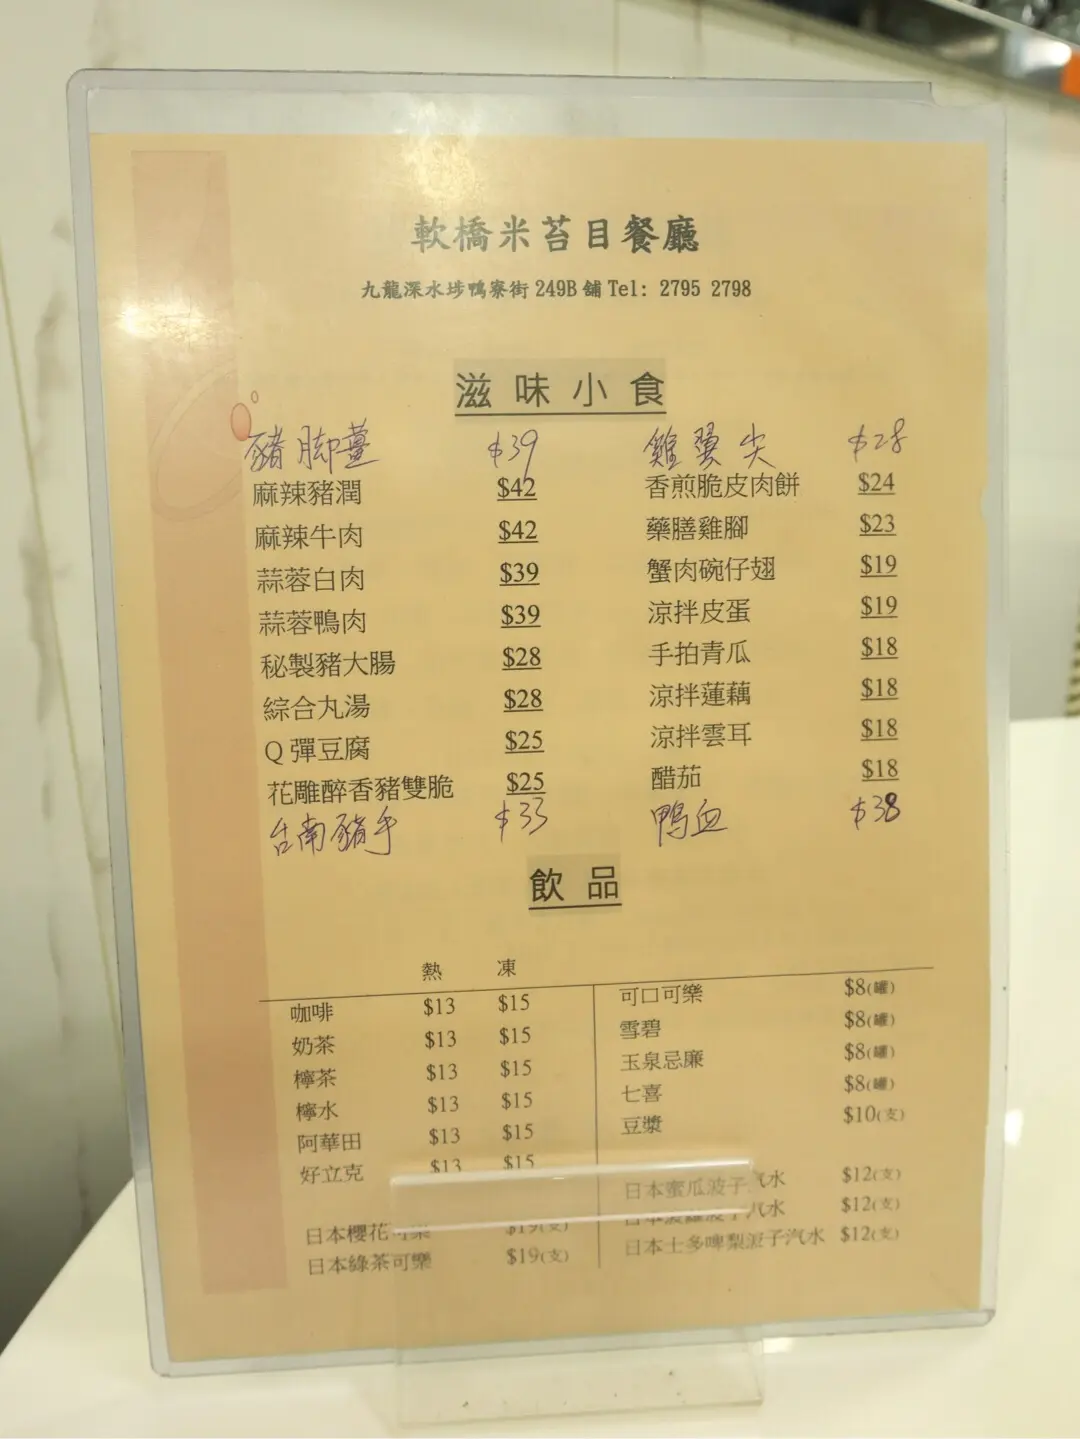 軟橋米苔目餐廳
九龍深水埗鴨寮街 249B 舖 Tel: 2795 2798
滋味小食
豬脚薑 $39 雞翼尖 $28
麻辣豬潤 $42 香煎脆皮肉餅 $24
麻辣牛肉 $42 藥膳雞腳 $23
蒜蓉白肉 $39 蟹肉碗仔翅 $19
蒜蓉鴨肉 $39 涼拌皮蛋 $19
秘製豬大腸 $28 手拍青瓜 $18
綜合丸湯 $28 涼拌蓮藕 $18
Q 彈豆腐 $25 涼拌雲耳 $18
花雕醉香豬雙脆 $25 醋茄 $18
台南豬手 $33 鴨血 $38
飲品
熱 凍
咖啡 $13 $15 可口可樂 $8(罐)
奶茶 $13 $15 雪碧 $8(罐)
檸茶 $13 $15 玉泉忌廉 $8(罐)
檸水 $13 $15 七喜 $8(罐)
阿華田 $13 $15 豆漿 $10(支)
好立克 $13 $15
日本蜜瓜波子汽水 $12(支)
日本櫻花可樂 $19(支) 日本波子汽水 $12(支)
日本綠茶可樂 $19(支) 日本士多啤梨波子汽水 $12(支)